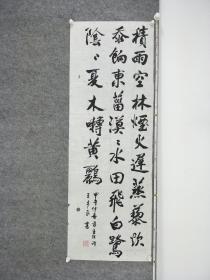 積雨空林煙火遲蒸藜炊
黍餉東菑漠〻水田飛白鷺
陰〻夏木囀黃鸝
甲午仲春
書